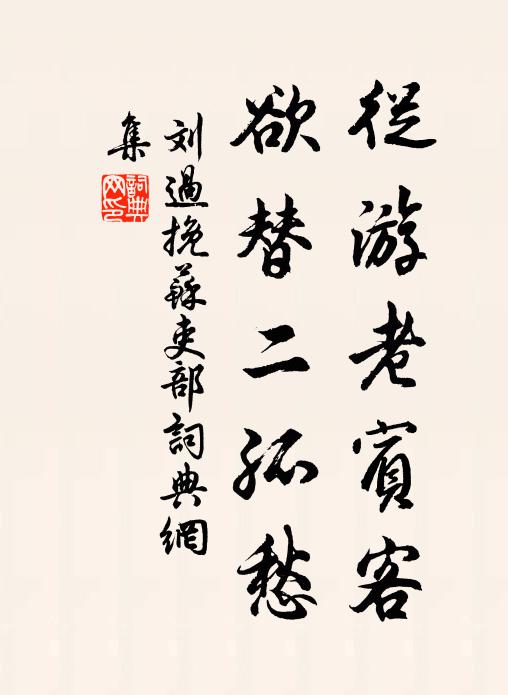 從游老賓客
欲替二孤愁
刘過挽蘇吏部詞典網
集
詞典
网印